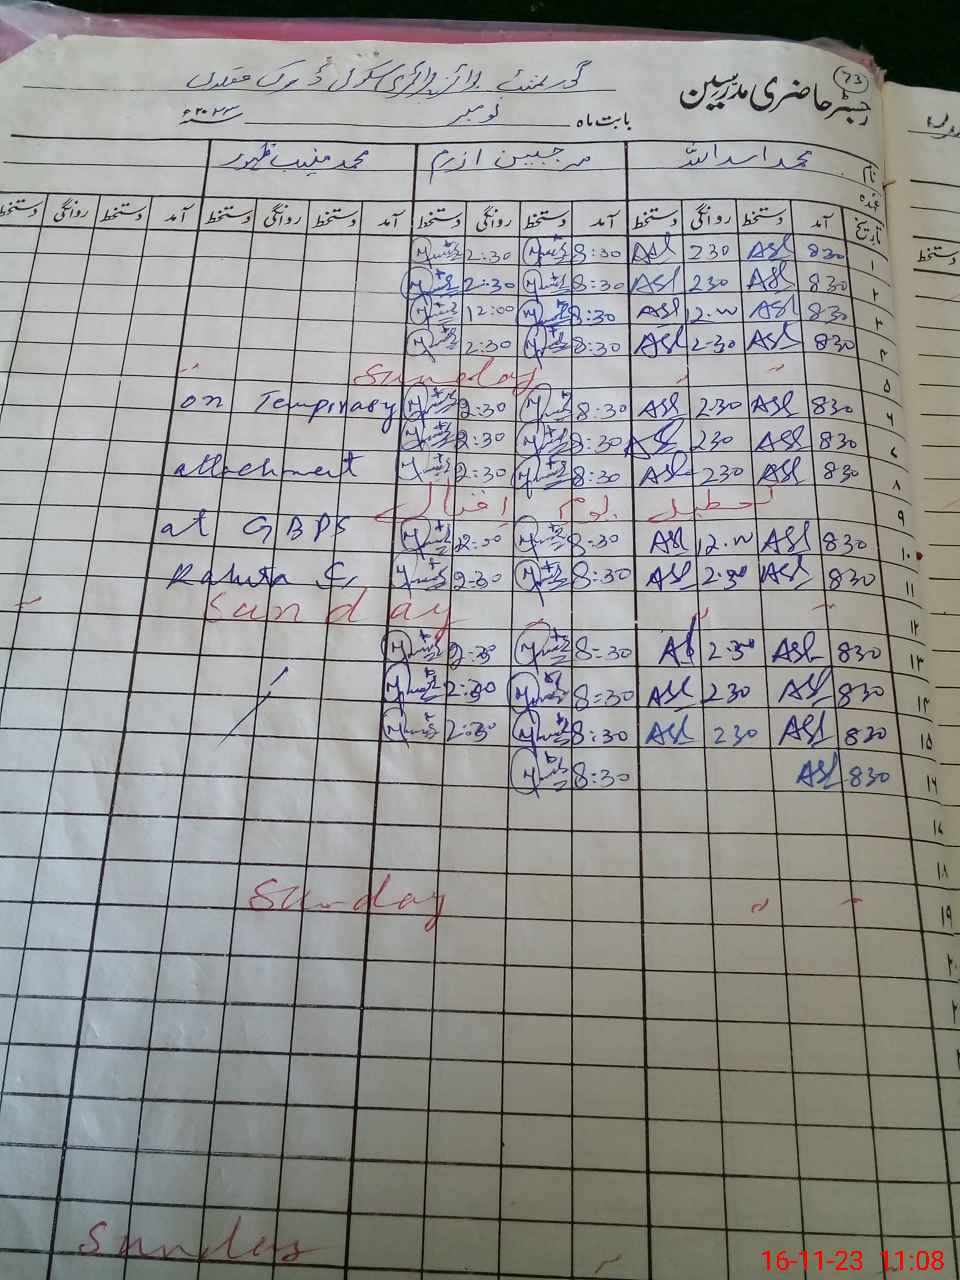 رجسٹر حاضری مدرسین ۷۳
گورنمنٹ بوائز پرائمری سکول
بابت ماہ نومبر ۲۰۲۳ء
نام محمد اسد اللہ مہ جبین ارم محمد منیب ظہور
عہدہ
تاریخ آمد دستخط روانگی دستخط آمد دستخط روانگی دستخط آمد دستخط روانگی دستخط آمد دستخط روانگی دستخط
۱ 830 ASL 230 ASL 8:30 2:30
۲ 830 ASL 230 ASL 8:30 2:30
۳ 830 ASL 12.00 ASL 8:30 12:00
۴ 830 ASL 2-30 ASL 8:30 2:30
۵ " " Sunday "
۶ 830 ASL 2.30 ASL 8:30 2:30 on Tempirary
۷ 830 ASL 230 ASL 8:30 2:30
۸ 830 ASL 230 ASL 8:30 2:30 attachment
۹ تعطیل یوم اقبال
۱۰ 830 ASL 12.00 ASL 8:30 12:00 at GBPS
۱۱ 830 ASL 2.30 ASL 8:30 2:30
۱۲ " " Sunday "
۱۳ 830 ASL 2.30 ASL 8:30 2:30
۱۴ 830 ASL 230 ASL 8:30 2:30
۱۵ 830 ASL 230 ASL 8:30 2:30
۱۶ 830 ASL 8:30
۱۷
۱۸
۱۹ " " Sunday
۲۰
Sunday
16-11-23 11:08